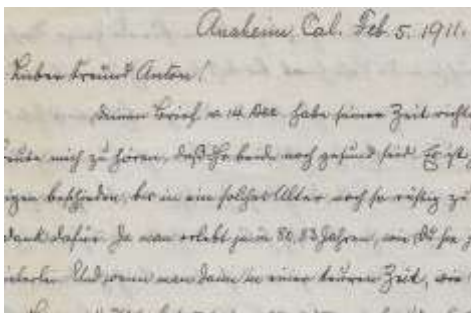 Anaheim, Cal. Feb. 5. 1911.
Lieber Freund Anton!
Deinen Brief v. 14. Dez. habe seiner Zeit richt
freute mich zu hören, daß Ihr beide noch gesund seid. Es ist
igen beschieden, bis in ein solches Alter noch so rüstig zu
dank dafür. Ja man erlebt ja in 80, 83 Jahren, wie Du sie
vielerlei. Und wenn man dann in einer teuren Zeit, wie